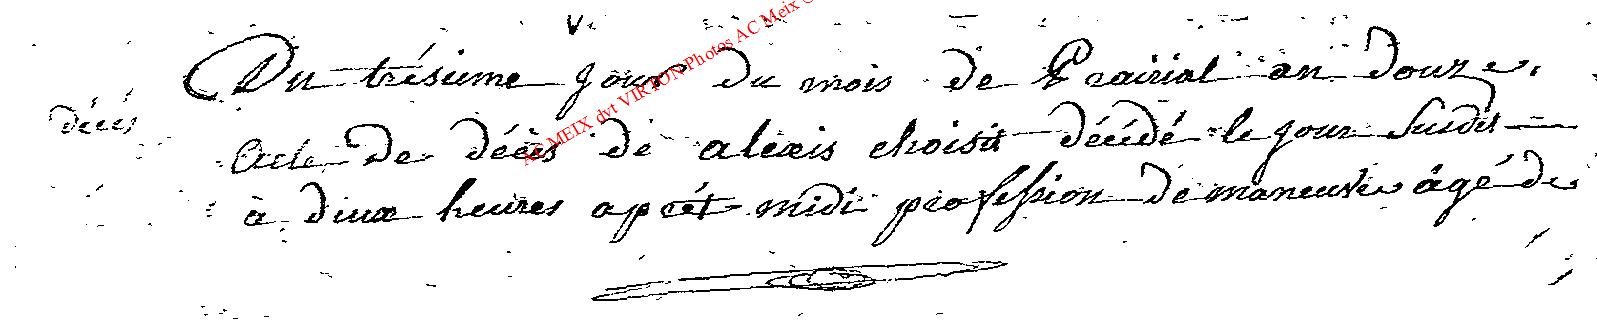 Du trésieme jour du mois de Prairial an douze.
décés
Acte De décès de alexis choisit décédé le jour susdit
à deux heures aprét midi profession de maneuvre âgé de
AC MEIX dvt VIRTON-Photos AC Meix